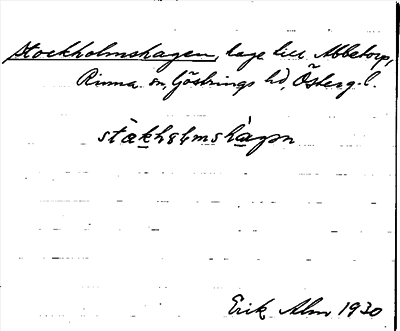 Stockholmshagen, lage till Abbetorp,
Rinna sn, Göstrings hd, Österg. l.
stàkhɷlmshàgɷn
Erik Alm 1930